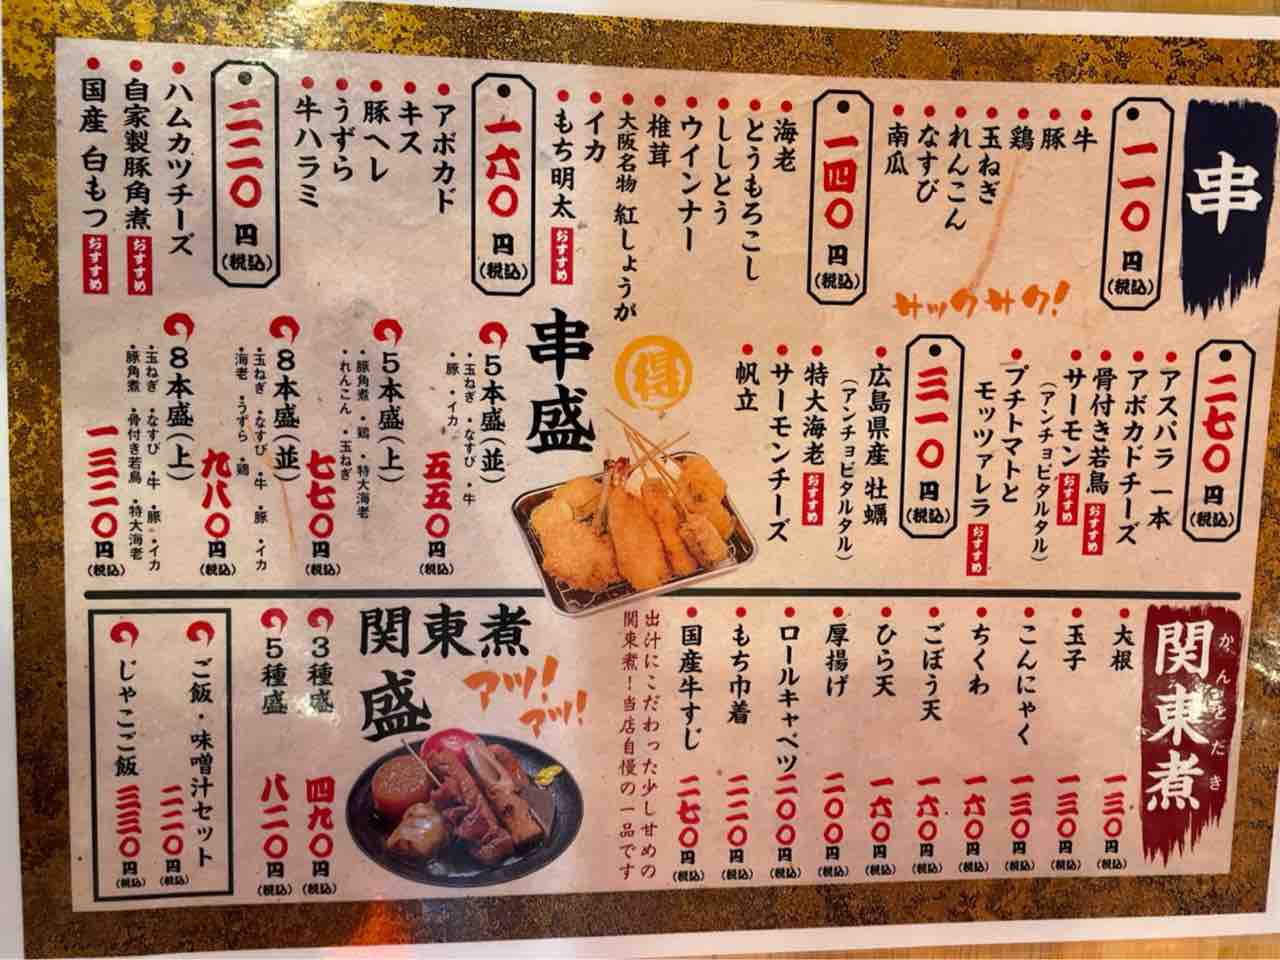 串
一一〇円(税込)
牛
豚
鶏
玉ねぎ
れんこん
なすび
南瓜
サックサク!
一四〇円(税込)
海老
とうもろこし
ししとう
ウインナー
椎茸
大阪名物 紅しょうが
イカ
もち明太 おすすめ
一六〇円(税込)
アボカド
キス
豚ヘレ
うずら
牛ハラミ
二二〇円(税込)
ハムカツチーズ
自家製豚角煮 おすすめ
国産 白もつ おすすめ
二七〇円(税込)
アスパラ 一本
アボカドチーズ
骨付き若鳥 おすすめ
サーモン おすすめ
(アンチョビタルタル)
プチトマトと
モッツァレラ おすすめ
三一〇円(税込)
広島県産 牡蠣
(アンチョビタルタル)
特大海老 おすすめ
サーモンチーズ
帆立
得
串盛
5本盛(並)
・玉ねぎ ・なすび ・牛
・豚 ・イカ
五五〇円(税込)
5本盛(上)
・豚角煮 ・鶏 ・特大海老
・れんこん ・玉ねぎ
七七〇円(税込)
8本盛(並)
・玉ねぎ ・なすび ・牛 ・豚 ・イカ
・海老 ・うずら ・鶏
九八〇円(税込)
8本盛(上)
・玉ねぎ ・なすび ・牛 ・豚 ・イカ
・豚角煮 ・骨付き若鳥 ・特大海老
一三二〇円(税込)
関東煮
かんとだき
大根 一三〇円(税込)
玉子 一三〇円(税込)
こんにゃく 一三〇円(税込)
ちくわ 一六〇円(税込)
ごぼう天 一六〇円(税込)
ひら天 一六〇円(税込)
厚揚げ 二〇〇円(税込)
ロールキャベツ 二〇〇円(税込)
もち巾着 二二〇円(税込)
国産牛すじ 二七〇円(税込)
出汁にこだわった少し甘めの
関東煮!当店自慢の一品です
関東煮
盛
アツ!
アツ!
3種盛 四九〇円(税込)
5種盛 八二〇円(税込)
ご飯・味噌汁セット 二二〇円(税込)
じゃこご飯 三三〇円(税込)